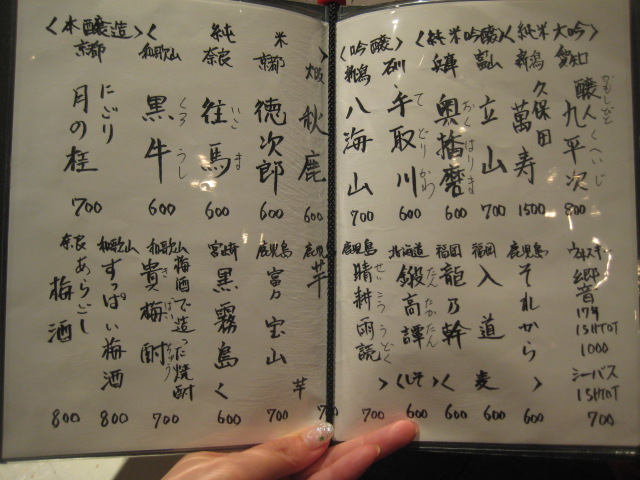 〈純米大吟〉
愛知
醸し人九平次
かもしびと くへいじ
800
新潟
久保田
萬寿
1500
〈純米吟醸〉
富山
立山
700
兵庫
奥播磨
おくはりま
600
〈吟醸〉
石川
手取川
てどりがわ
600
新潟
八海山
700
〈純米〉
大阪
秋鹿
600
京都
徳次郎
600
奈良
往馬
いこま
600
和歌山
黒牛
くろうし
600
〈本醸造〉
京都
にごり
月の桂
700
ウイスキー
郷音
17年
1SHOT
1000
シーバス
1SHOT
700
鹿児島
それから
600
福岡
入道
600
福岡
龍乃幹
600
〈麦〉
北海道
鍛高譚
たんたかたん
〈しそ〉
600
鹿児島
晴耕雨読
せいこううどく
700
鹿児島
芋
700
鹿児島
富乃宝山
700
宮崎
黒霧島
600
〈芋〉
和歌山
梅酒で造った焼酎
貴梅酎
きばいちゅう
700
和歌山
すっぱい梅酒
800
奈良
あらごし
梅酒
800